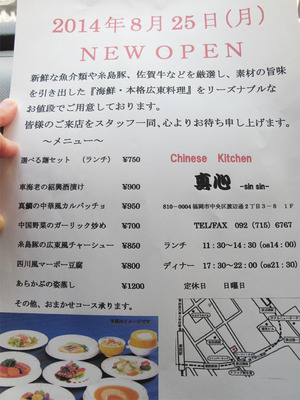 2014年8月25日(月)
NEW OPEN
新鮮な魚介類や糸島豚、佐賀牛などを厳選し、素材の旨味
を引き出した『海鮮・本格広東料理』をリーズナブルな
お値段でご用意しております。
皆様のご来店をスタッフ一同、心よりお待ち申し上げます。
～メニュー～
選べる麺セット (ランチ) ¥750
車海老の紹興酒漬け ¥900
真鯛の中華風カルパッチョ ¥950
中国野菜のガーリック炒め ¥700
糸島豚の広東風チャーシュー ¥850
四川風マーボー豆腐 ¥800
あらかぶの姿蒸し ¥1200
その他、おまかせコース承ります。
Chinese Kitchen
真心 -sin sin-
810-0004 福岡市中央区渡辺通2丁目3-8 1F
TEL/FAX 092 (715) 6767
ランチ 11:30～14:30 (os14:00)
ディナー 17:30～22:00 (os21:30)
定休日 日曜日